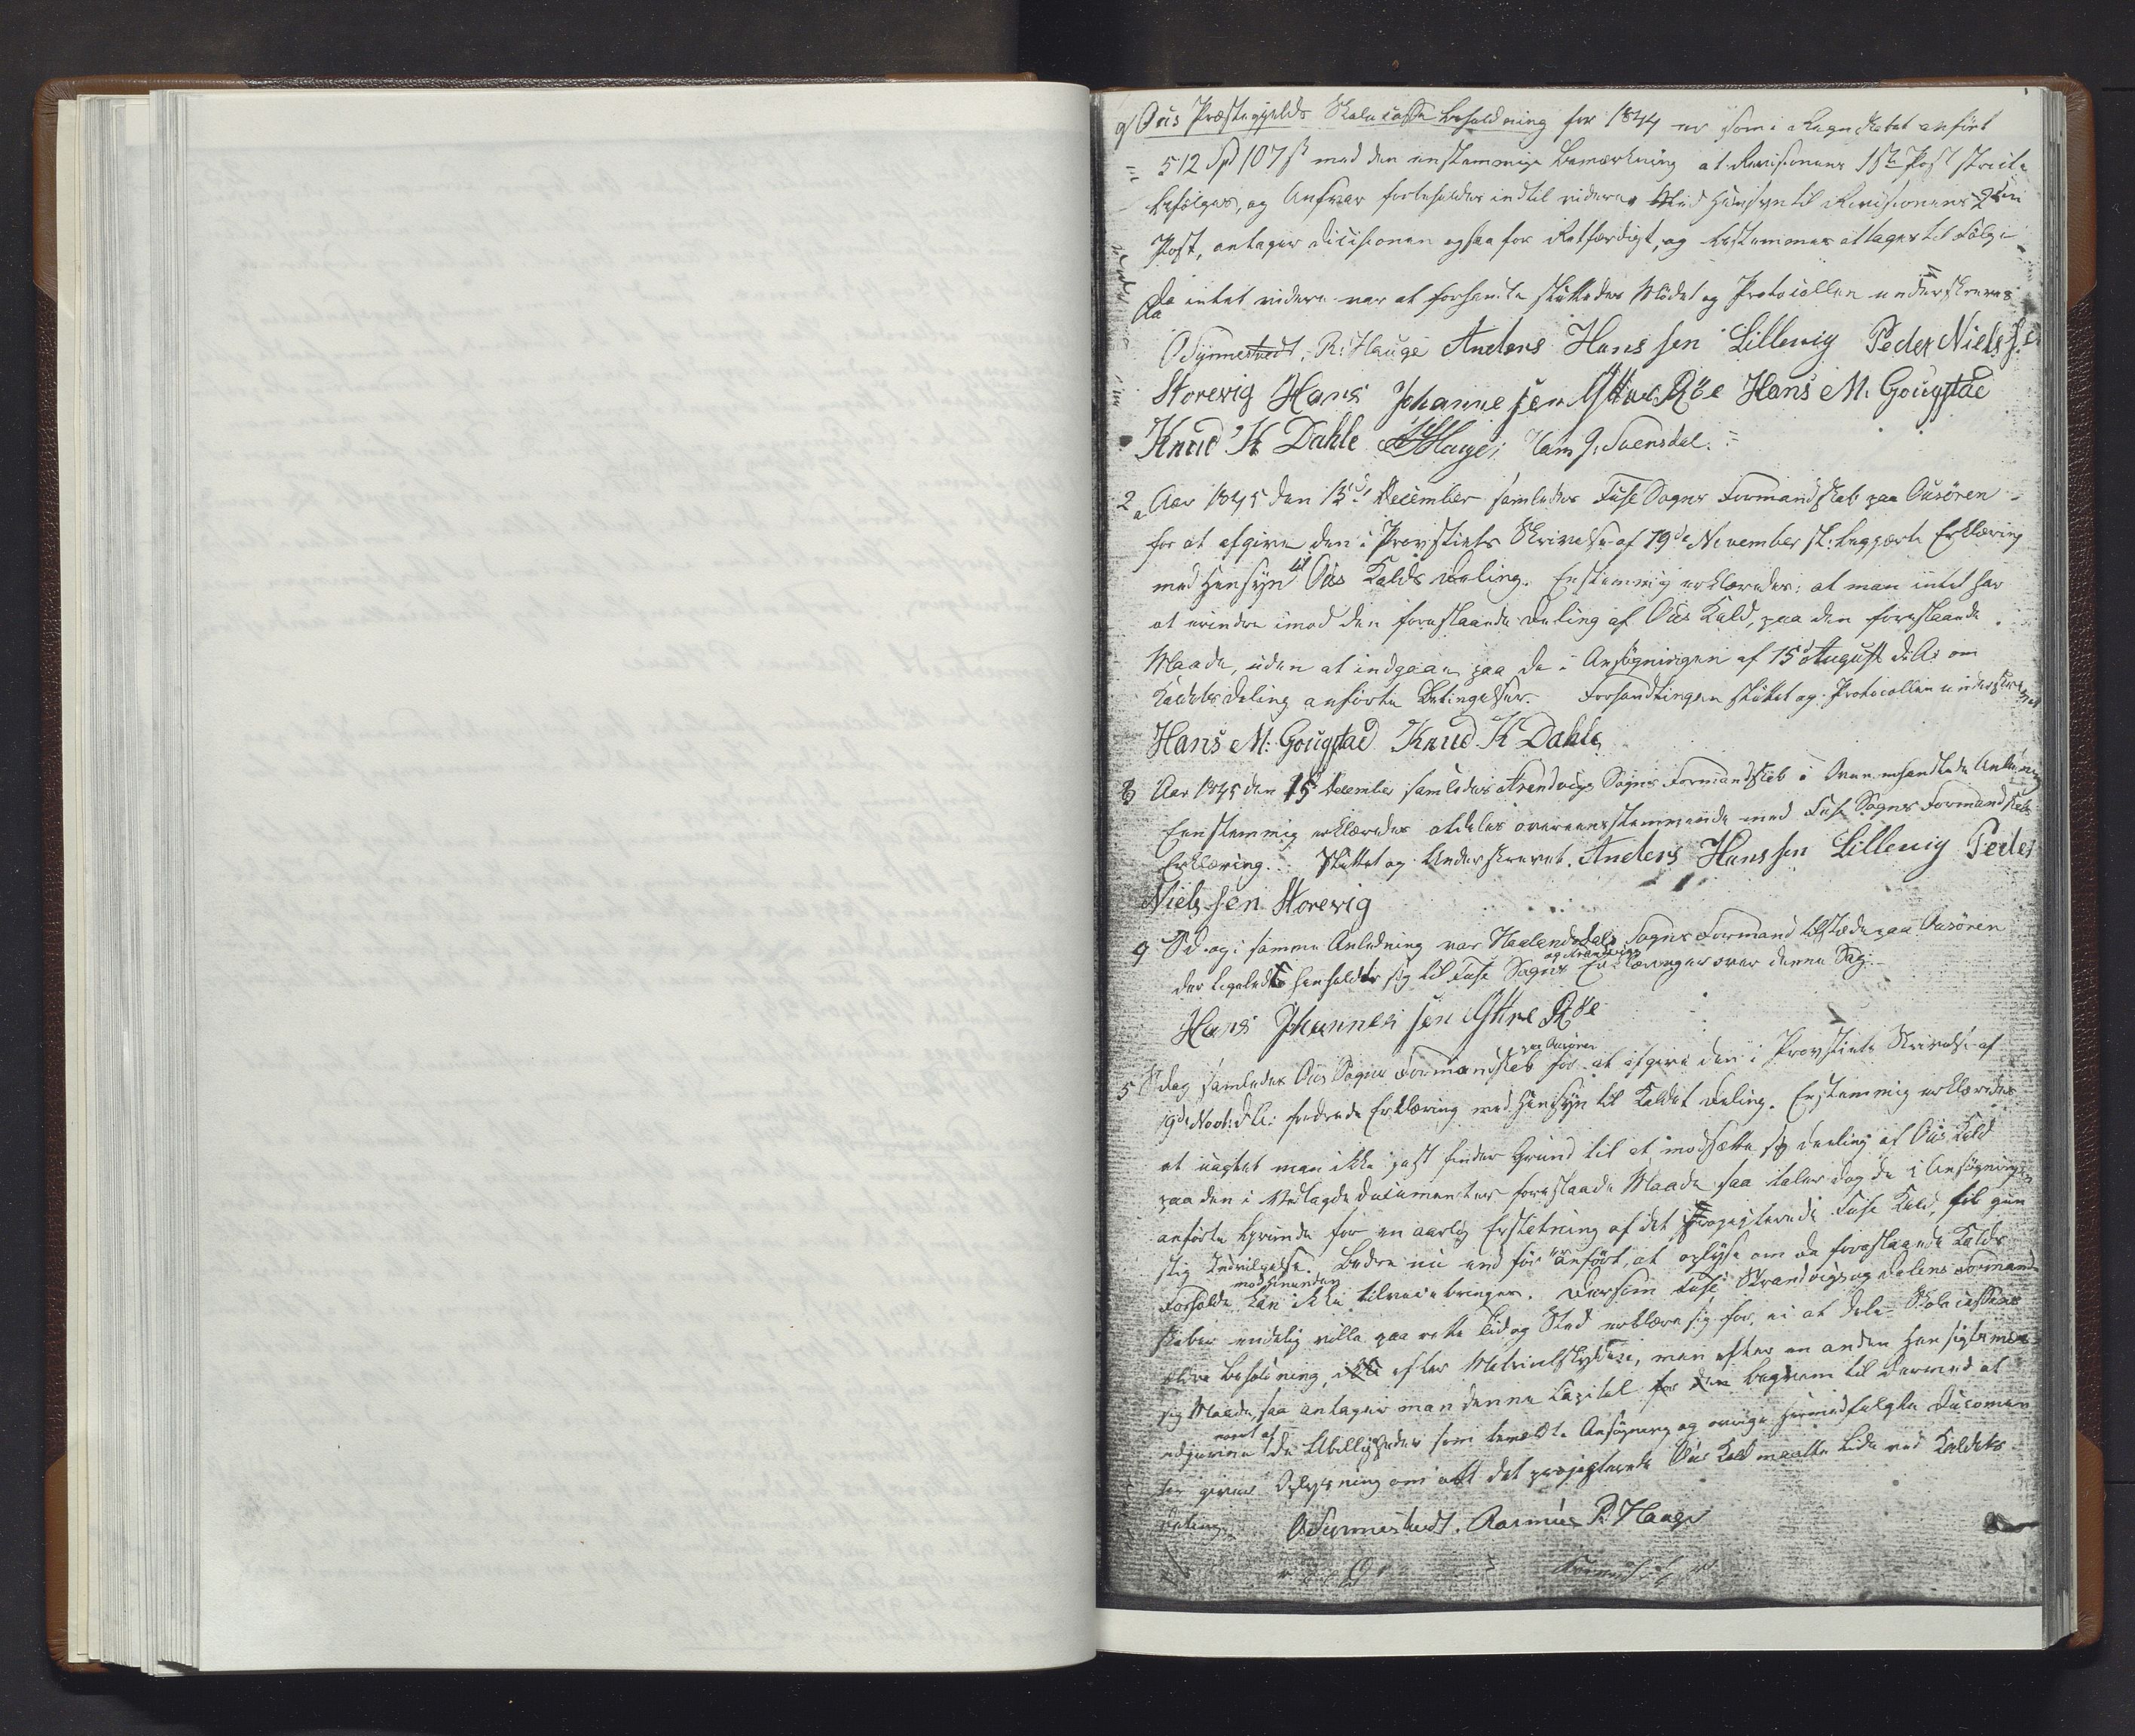 9/ Ous Præstegjelds Skolecasse Beholdning for 1844 er som i Regnskabet anført
512 Spd 107 s med den enstemmige Bemærkning at Revisionens 1ste Post
befølges, og Ansvar forbeholdes indtil videre. Med Hensyn til Revisionens 2den
Post, antages Decisionen ogsaa for Retfærdigt, og bestemmes at tages til Følge
Da intet videre var at forhandle sluttedes Mødet og Protocollen underskreves
OSynnestvedt, R: Hauge Anders Hanssen Lillevig Peder Nielssen
Storevig Hans Johannessen Østre Røe Hans M. Gougstad
Knud K Dahle Hauge; J. Svensdal.
2 Aar 1845 den 15de December samledes Fuse Sogns Formandskab paa Ousøren
for at afgive den i Provstiets Skrivelse af 19de November begjærte Erklæring
med Hensyn til Ous Kalds Deling. Enstemmig erklæredes: at man intet har
at erindre imod den foreslaaede Deling af Ous Kald, paa den foreslaaede
Maade, uden at indgaae paa de i Ansøgningen af 15d August d.A. om
Kaldets deling anførte Betingelser. Forhandlingen sluttet og Protocollen underskrevet
Hans M: Gougstad Knud K Dahle
3 Aar 1845 den 15 December samledes Strandvigs Sogns Formandskab i Ovenomhandlede Anledning
Eenstemmig erklæredes aldeles overeensstemmende med Fuse Sogns Formandskabs
Erklæring. Sluttet og Underskrevet. Anders Hanssen Lillevig Peder
Nielssen Storevig
4 S.D. og i samme Anledning var Haalandsdals Sogns Formand tilstæde paa Ousøren
der ligeledes henholdt sig til Fuse og Strandvigs Sognes Erklæringer over denne Sag.
Hans Johannessen Østre Røe
5 S dag samledes Ous Sogns Formandskab paa Ousøren for at afgive den i Provstiets Skrivelse af
19de Novbr: d.A: fordrede Erklæring med Hensyn til Kaldets Deling. Enstemmig erklæredes
at uagtet man ikke just finder Grund til at modsætte sig deeling af Ous Kald
paa den i Vedlagde Documenter foreslaaede Maade saa taler dog de i Ansøgningen
anførte Grunde for en aarlig Erstatning af det projecterede Fuse Kald, til gun
stig Indvilgelse. Bedre nu end før er anført, at oplyse om de foreslagede Kalds
Forholde mod hinanden kan ikke tilveiebringes. Dersom Fuse Strandvigs og Dalens Formand
skaber endelig ville paa rette Tid og Sted erklære sig for, ei at dele Skolecassens
Beholdning, efter Matriculskylden, men efter en anden Hensigtsmæs
sig Maade, saa antager man denne Capital beqvem til dermed at
udjævne noget af de Ubilligheder som bemeldte Ansøgning og øvrige hermed fulgte Documen
ter giver Oplysning om at det projecterede Ous Kald maatte lide ved Kaldets
Deling. OSynnestvedt. Rasmus R. Hauge